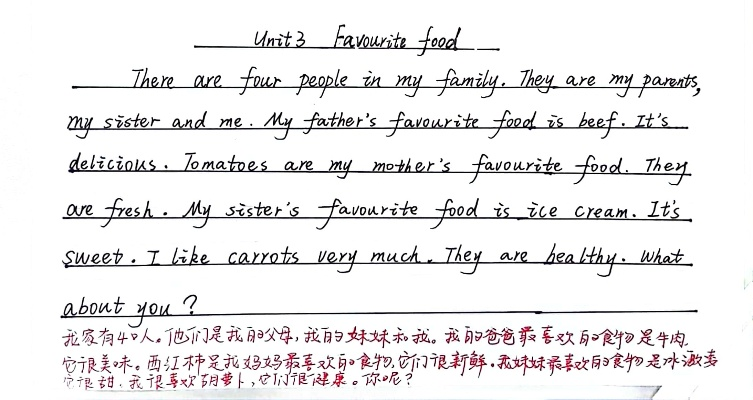 Unit 3 Favourite food
There are four people in my family. They are my parents,
my sister and me. My father's favourite food is beef. It's
delicious. Tomatoes are my mother's favourite food. They
are fresh. My sister's favourite food is ice cream. It's
sweet. I like carrots very much. They are healthy. What
about you?
我家有4口人。他们是我的父母,我的妹妹和我。我的爸爸最喜欢的食物是牛肉,
它很美味。西红柿是我妈妈最喜欢的食物,它们很新鲜。我妹妹最喜欢的食物是冰激凌
它很甜,我很喜欢胡萝卜,它们很健康。你呢?